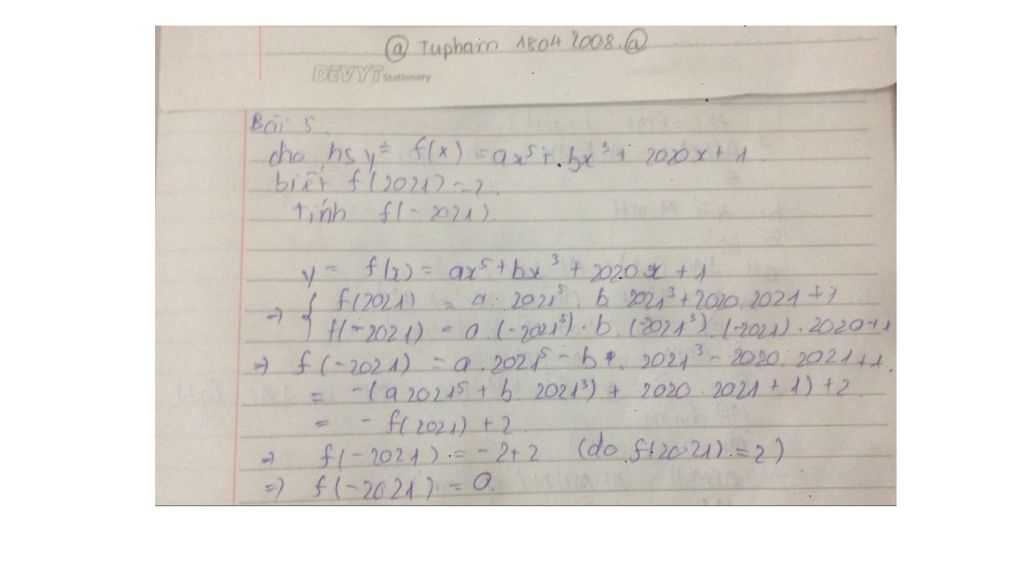 @ Tupham 18042008.@
DEVYT Stationery
Bài 5.
cho hs y = f(x) = ax⁵ + bx³ + 2020x + 1
biết f(2021) = 2.
tính f(-2021).
y = f(x) = ax⁵ + bx³ + 2020x + 1
⇒ { f(2021) = a. 2021⁵. b 2021³ + 2020. 2021 + 1
f(-2021) = a. (-2021⁵). b. (-2021³). (-2021). 2020 + 1
⇒ f(-2021) = a. 2021⁵ - b. 2021³ - 2020. 2021 + 1.
= -(a 2021⁵ + b. 2021³) + 2020. 2021 + 1) + 2
= - f(2021) + 2.
⇒ f(-2021) = -2+2 (do f(2021) = 2)
⇒ f(-2021) = 0.